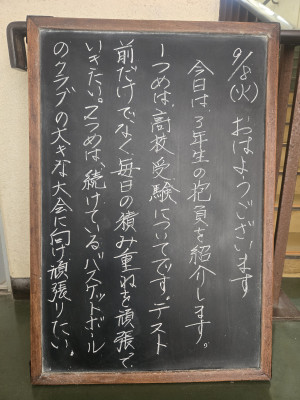 9/8(火) おはようございます
今日は、3年生の抱負を紹介します。
一つめは、高校受験についてです。テスト
前だけでなく毎日の積み重ねを頑張て、
いきたい。2つめは、続けているバスケットボール
のクラブの大きな大会に向け頑張りたい。